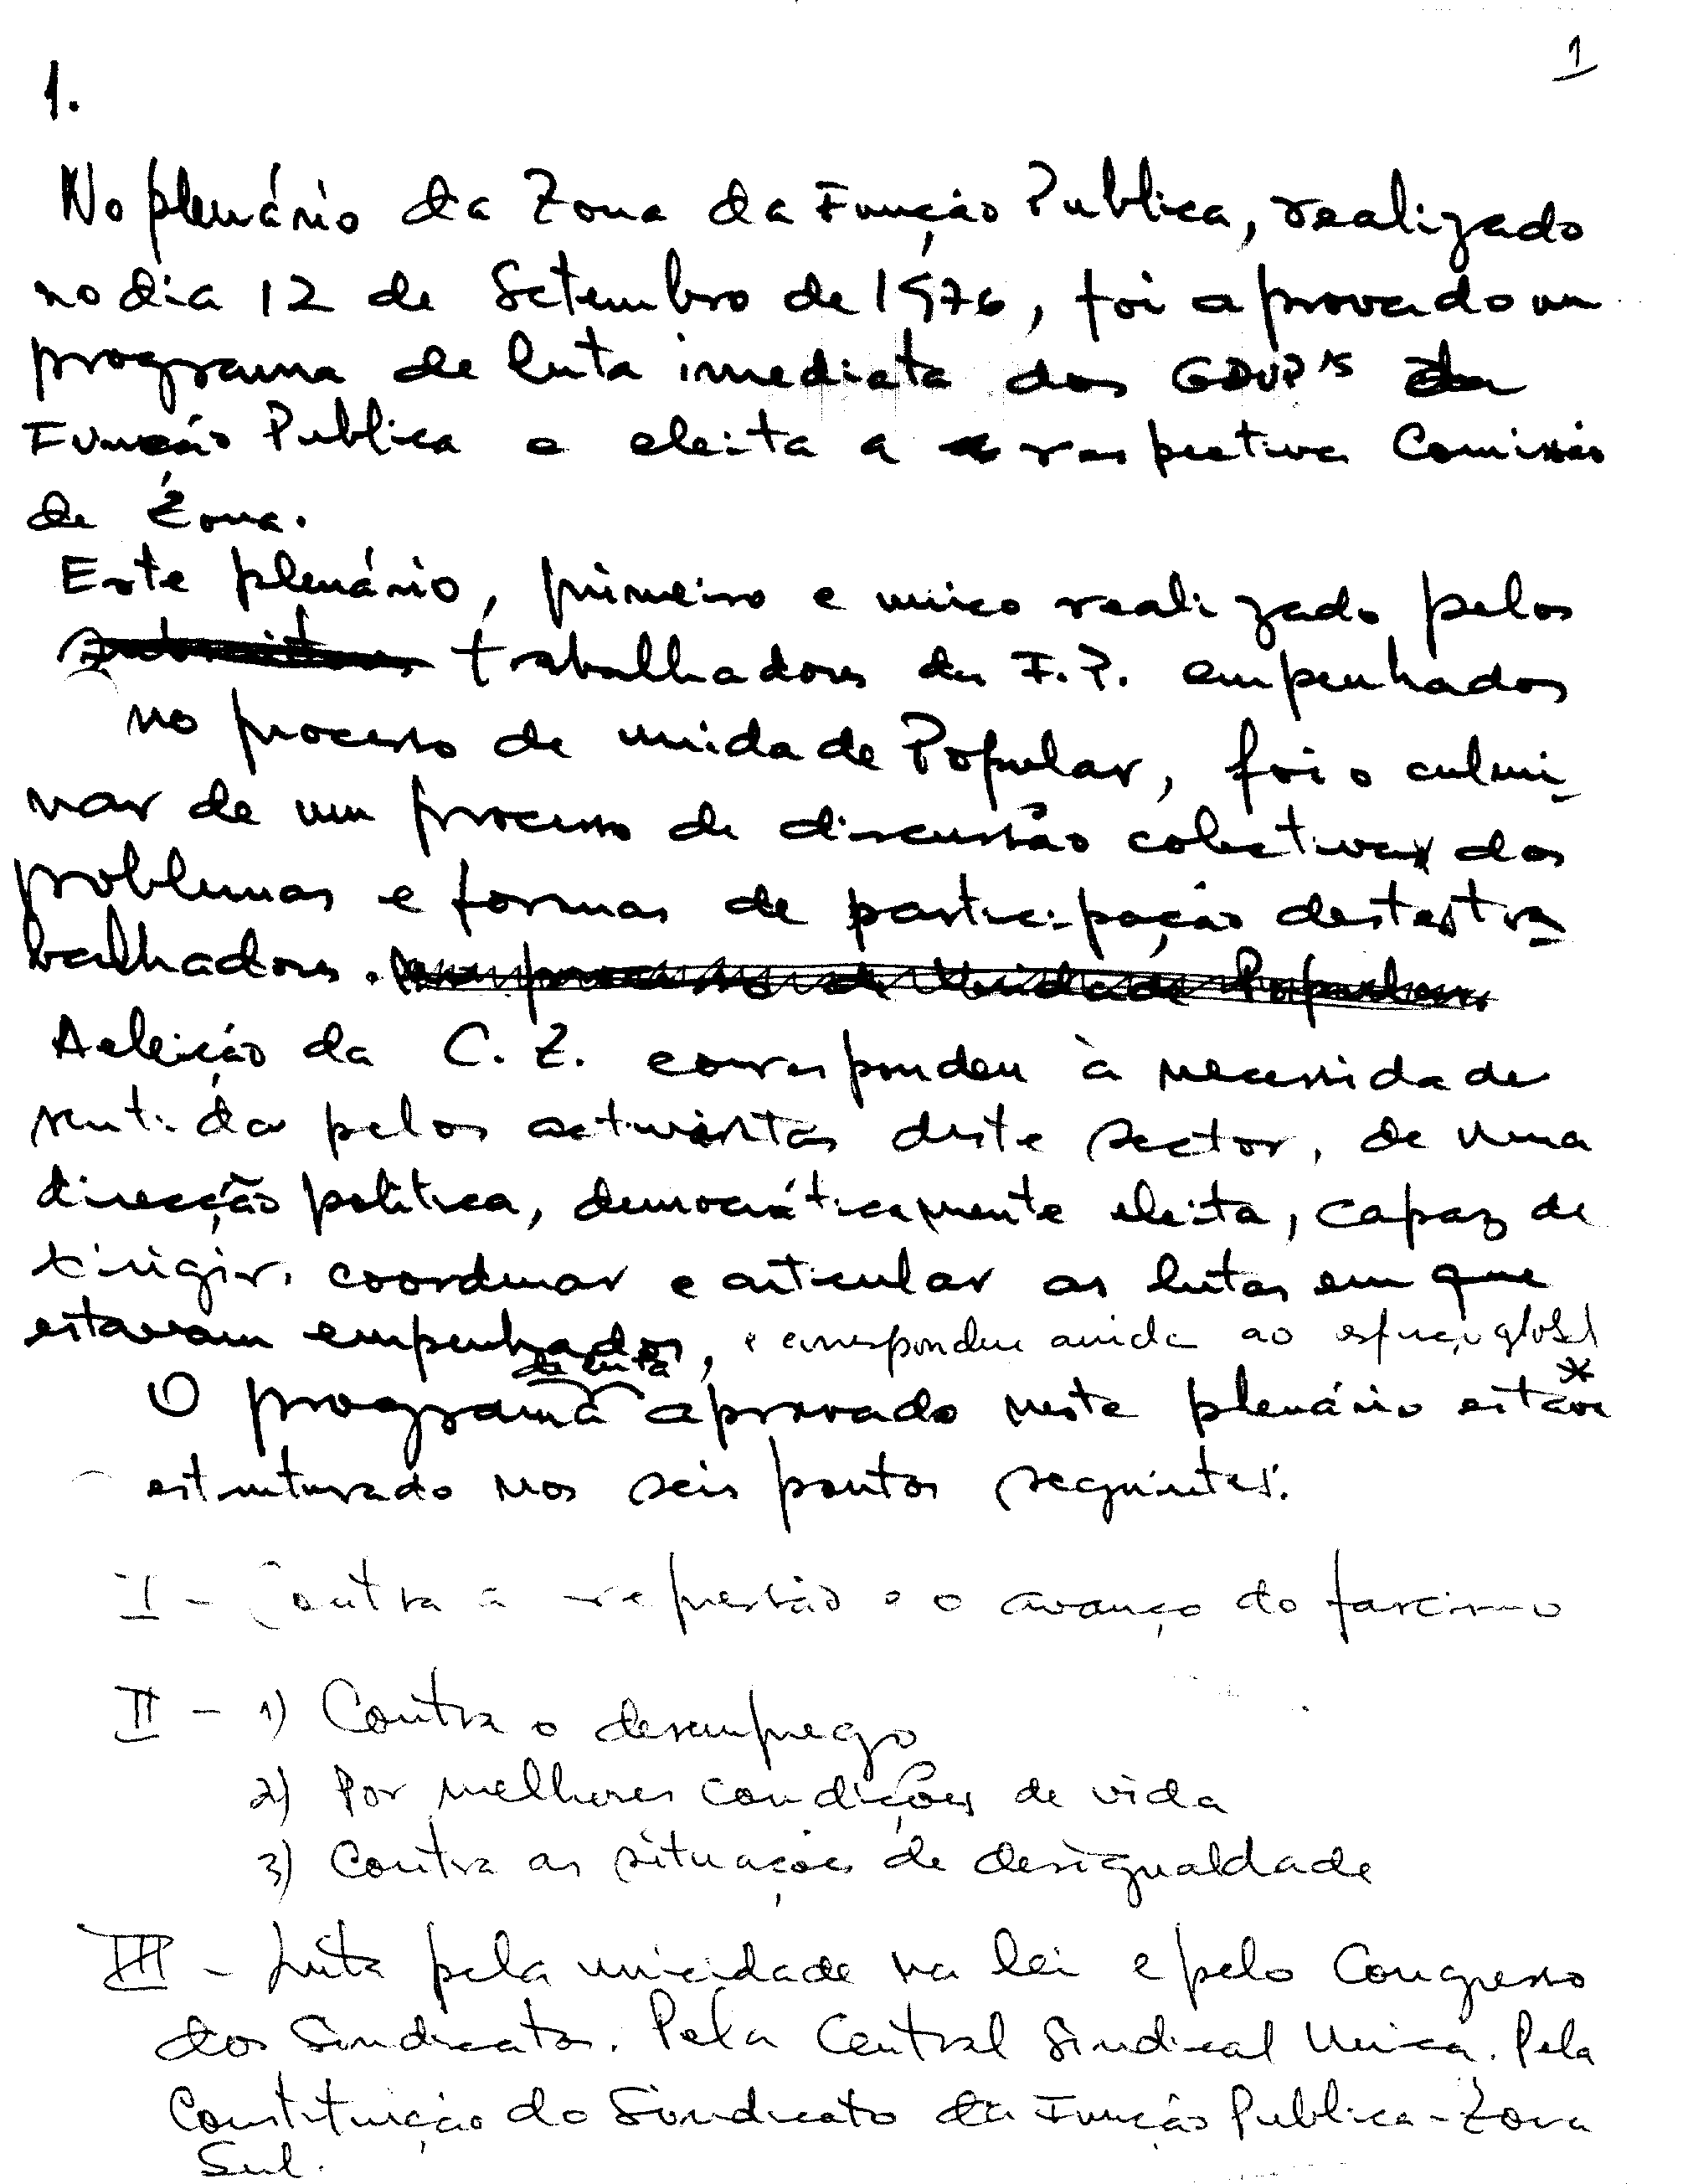 1
1.
No plenário da Zona da Função Publica, realizado
no dia 12 de Setembro de 1976, foi aprovado um
programa de luta imediata dos GDUP's da
Função Publica e eleita a respectiva Comissão
de Zona.
Este plenário, primeiro e unico realizado pelos
trabalhadores da F.P. empenhados
no processo de unidade Popular, foi o culmi-
nar de um processo de discussão colectiva dos
problemas e formas de participação destes tra-
balhadores.
A eleição da C. Z. correspondeu à necessidade
sentida pelos activistas deste sector, de uma
direcção politica, democráticamente eleita, capaz de
dirigir, coordenar e articular as lutas em que
estavam empenhados, e correspondeu ainda ao esforço global
*
de luta
O programa aprovado neste plenário estava
estruturado nos seis pontos seguintes:
I - Contra a repressão e o avanço do fascismo
II - 1) Contra o desemprego
2) Por melhores condições de vida
3) Contra as situações de desigualdade
III - Luta pela unicidade na lei e pelo Congresso
dos Sindicatos. Pela Central Sindical Unica. Pela
Constituição do Sindicato da Função Publica - Zona
Sul.